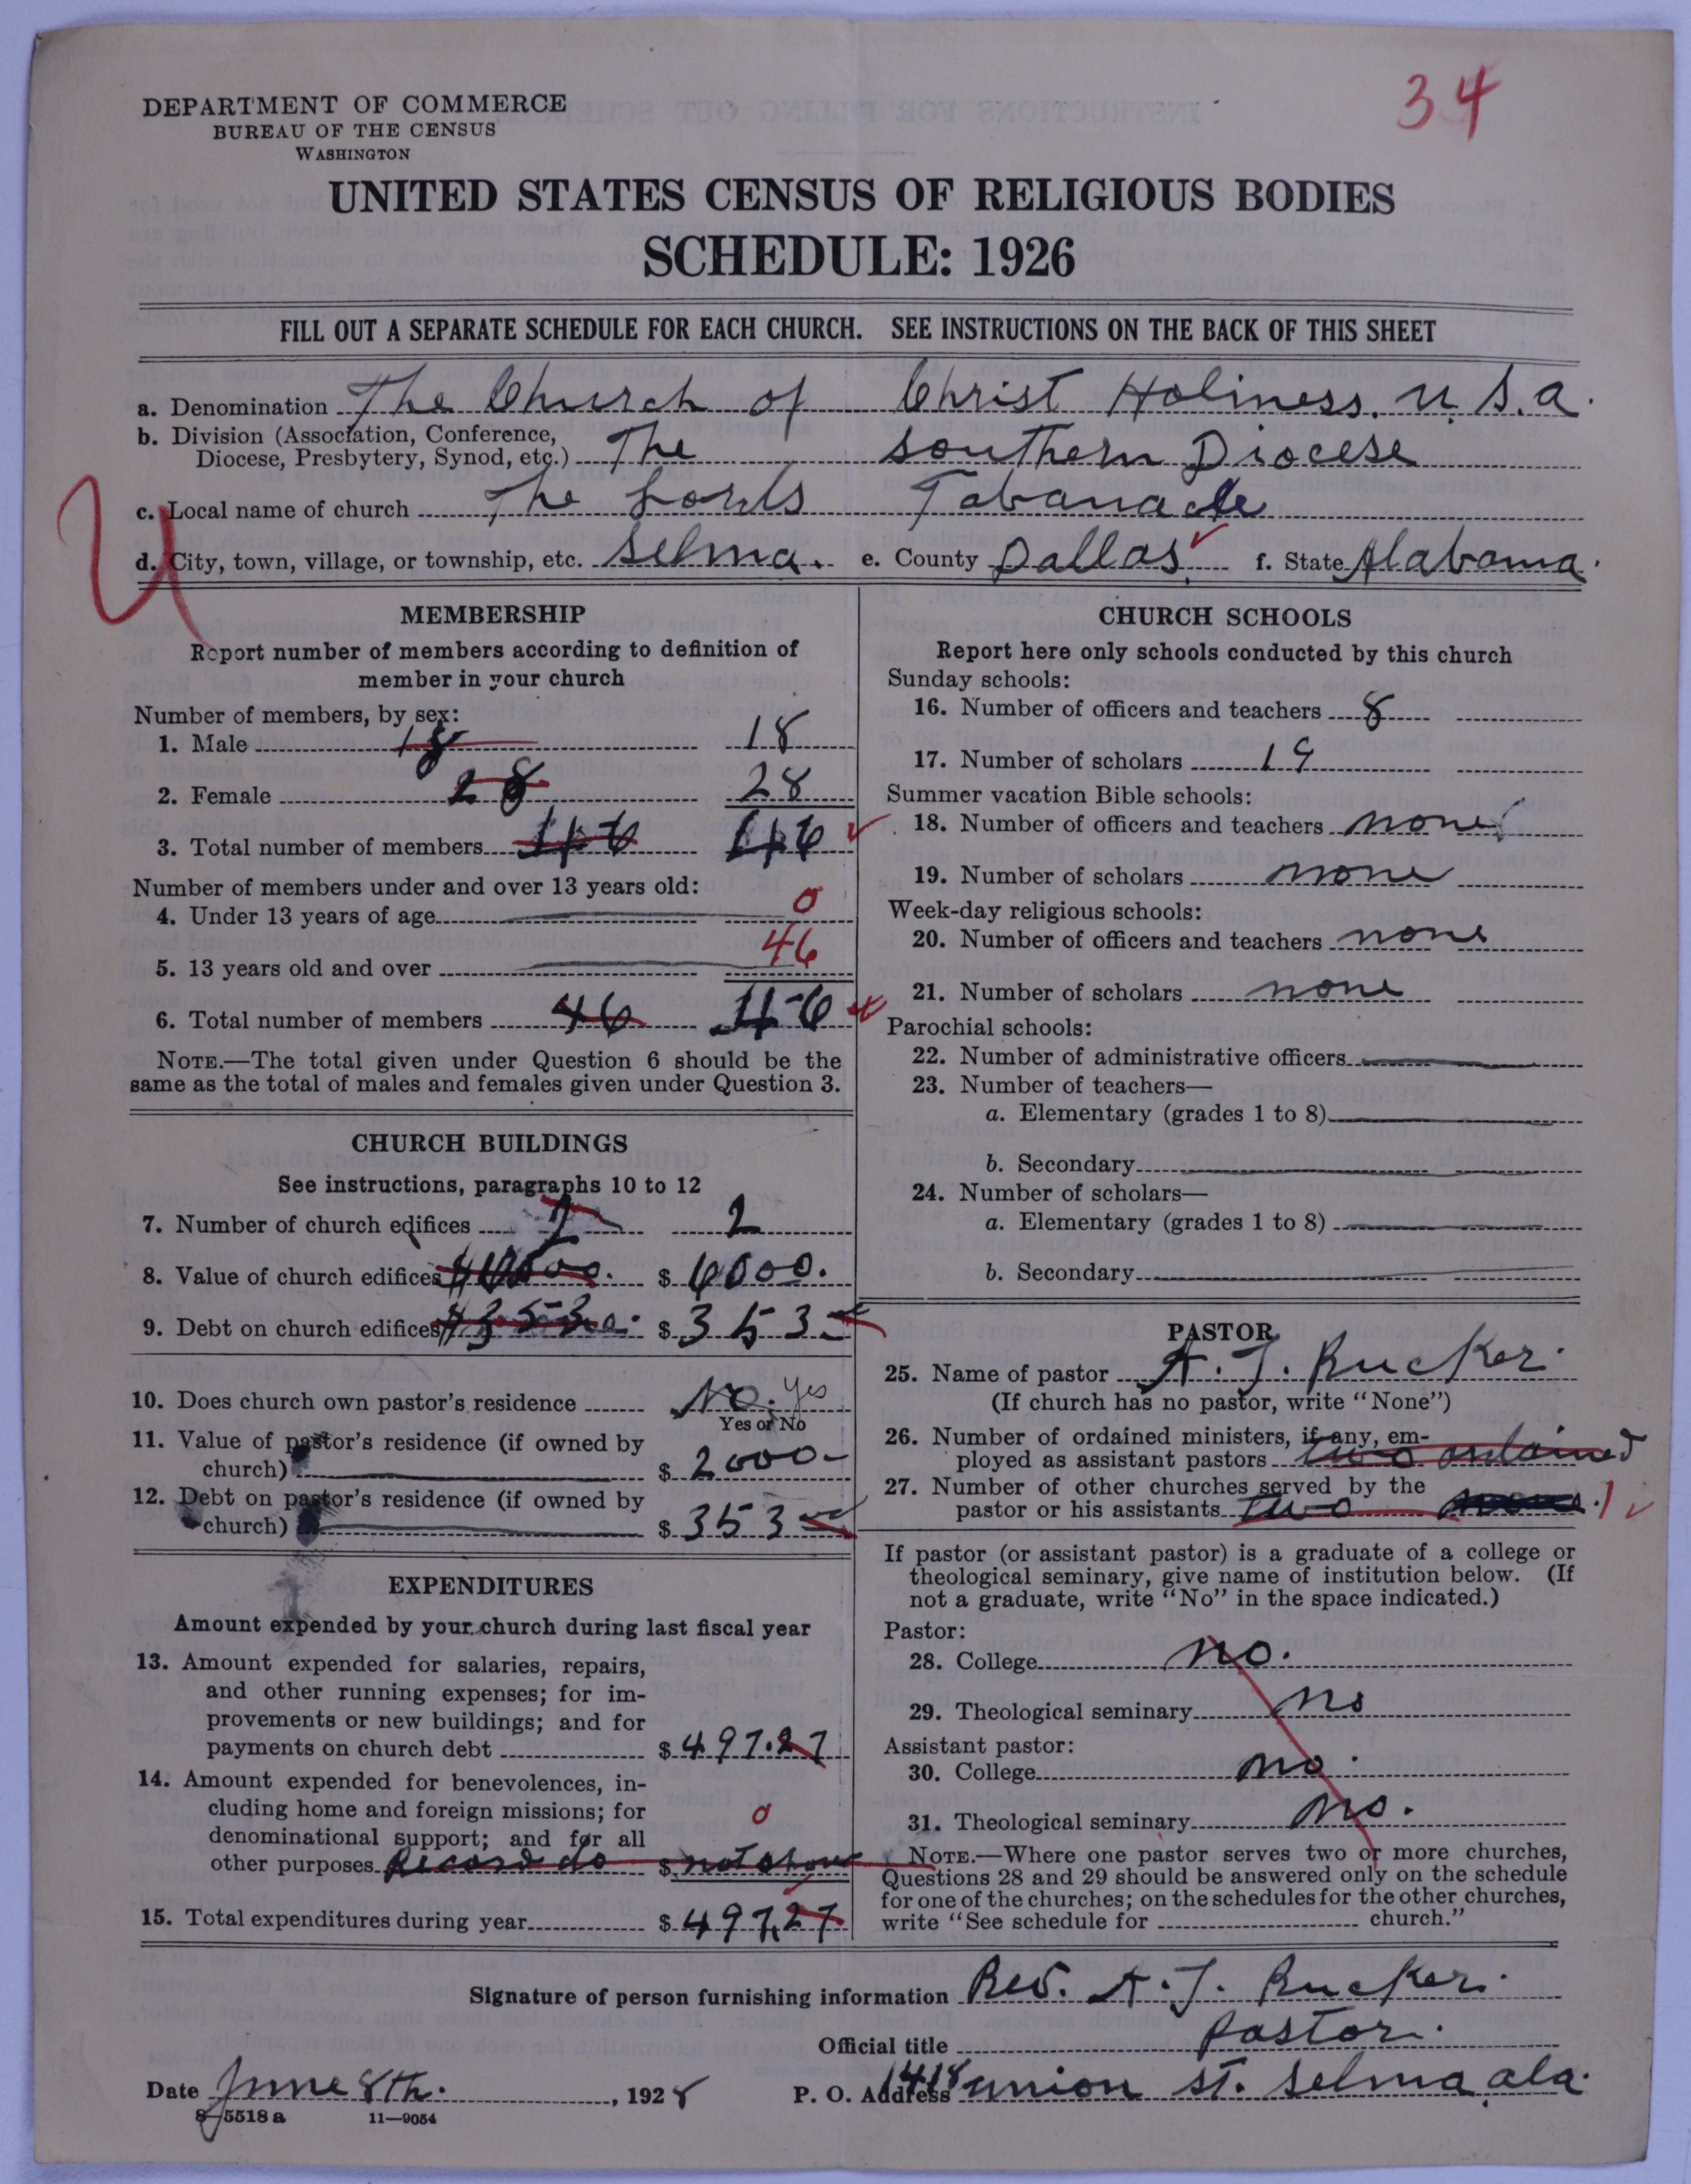 34
DEPARTMENT OF COMMERCE
BUREAU OF THE CENSUS
WASHINGTON
UNITED STATES CENSUS OF RELIGIOUS BODIES
SCHEDULE: 1926
FILL OUT A SEPARATE SCHEDULE FOR EACH CHURCH. SEE INSTRUCTIONS ON THE BACK OF THIS SHEET
a. Denomination The Church of Christ Holiness. U.S.a.
b. Division (Association, Conference,
Diocese, Presbytery, Synod, etc.) The southern Diocese
c. Local name of church The Lords Tabanacle
U
d. City, town, village, or township, etc. Selma. e. County Dallas f. State Alabama.
MEMBERSHIP
Report number of members according to definition of
member in your church
Number of members, by sex:
1. Male 18 18
2. Female 28 28
3. Total number of members 46 46
Number of members under and over 13 years old:
4. Under 13 years of age 0
5. 13 years old and over 46
6. Total number of members 46 46
NOTE.—The total given under Question 6 should be the
same as the total of males and females given under Question 3.
CHURCH BUILDINGS
See instructions, paragraphs 10 to 12
7. Number of church edifices 2
8. Value of church edifices $ 6000.
9. Debt on church edifices $ 353
10. Does church own pastor's residence No. Yes
Yes or No
11. Value of pastor's residence (if owned by
church) $ 2000-
12. Debt on pastor's residence (if owned by
church) $ 353
EXPENDITURES
Amount expended by your church during last fiscal year
13. Amount expended for salaries, repairs,
and other running expenses; for im-
provements or new buildings; and for
payments on church debt $ 497.27
14. Amount expended for benevolences, in-
cluding home and foreign missions; for 0
denominational support; and for all
other purposes Record do $ not show
15. Total expenditures during year $ 497.27
CHURCH SCHOOLS
Report here only schools conducted by this church
Sunday schools:
16. Number of officers and teachers 8
17. Number of scholars 19
Summer vacation Bible schools:
18. Number of officers and teachers none
19. Number of scholars none
Week-day religious schools:
20. Number of officers and teachers none
21. Number of scholars none
Parochial schools:
22. Number of administrative officers
23. Number of teachers—
a. Elementary (grades 1 to 8)
b. Secondary
24. Number of scholars—
a. Elementary (grades 1 to 8)
b. Secondary
PASTOR
25. Name of pastor A. J. Rucker.
(If church has no pastor, write "None")
26. Number of ordained ministers, if any, em-
ployed as assistant pastors two ordained
27. Number of other churches served by the
pastor or his assistants two 1
If pastor (or assistant pastor) is a graduate of a college or
theological seminary, give name of institution below. (If
not a graduate, write "No" in the space indicated.)
Pastor:
28. College no.
29. Theological seminary no
Assistant pastor:
30. College no.
31. Theological seminary no.
NOTE.—Where one pastor serves two or more churches,
Questions 28 and 29 should be answered only on the schedule
for one of the churches; on the schedules for the other churches,
write "See schedule for church."
Signature of person furnishing information Rev. A. J. Rucker.
Official title pastor.
Date June 8th. , 1928 P. O. Address 1418 union st. Selma ala.
8-5518 a 11-9054